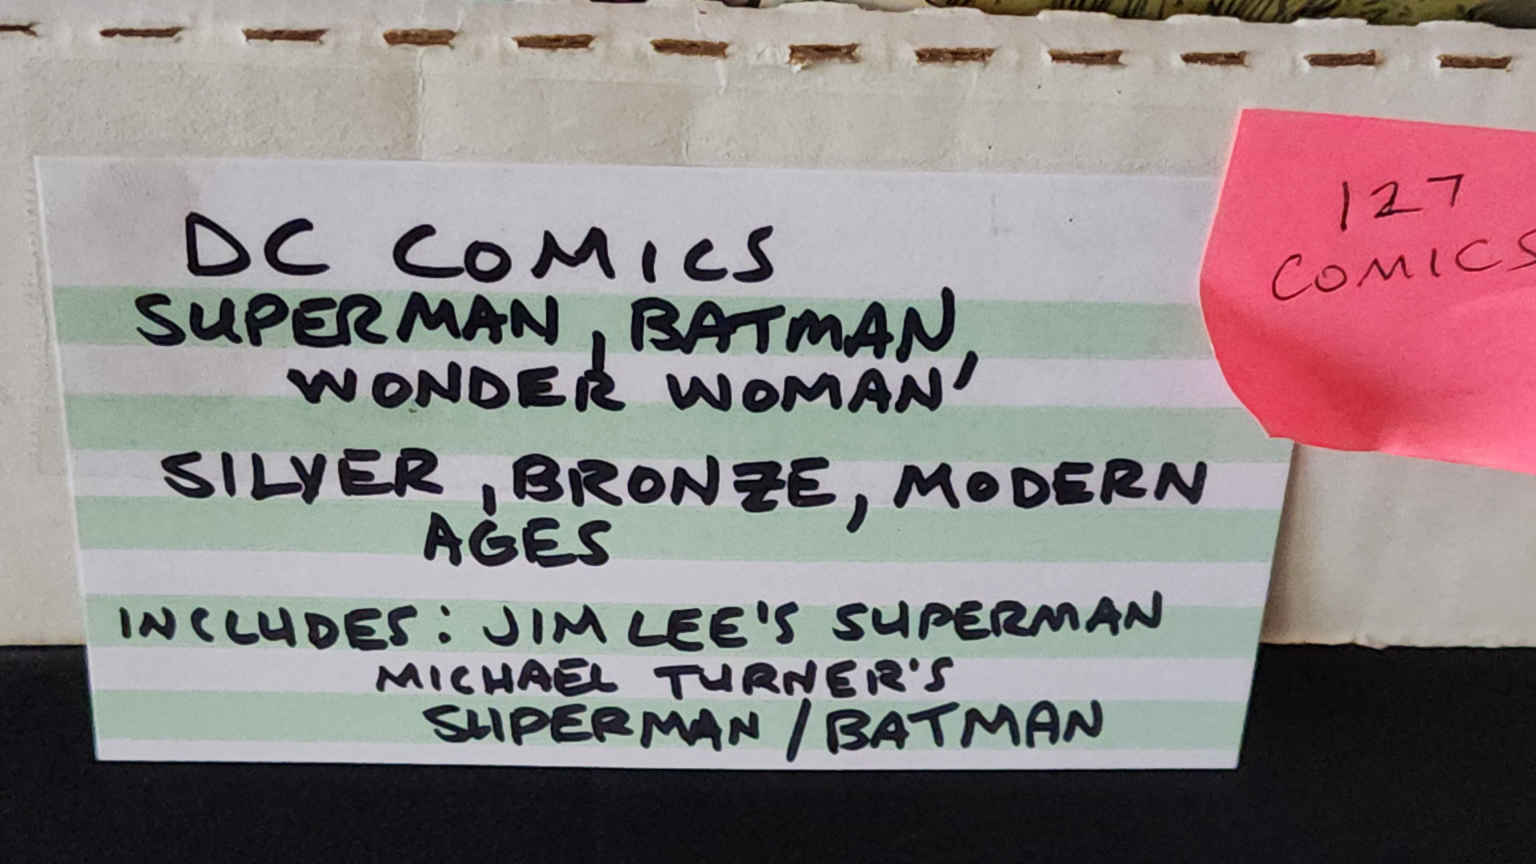 DC COMICS
SUPERMAN, BATMAN,
WONDER WOMAN'
SILVER, BRONZE, MODERN
AGES
INCLUDES: JIM LEE'S SUPERMAN
MICHAEL TURNER'S
SUPERMAN/BATMAN
127
COMICS